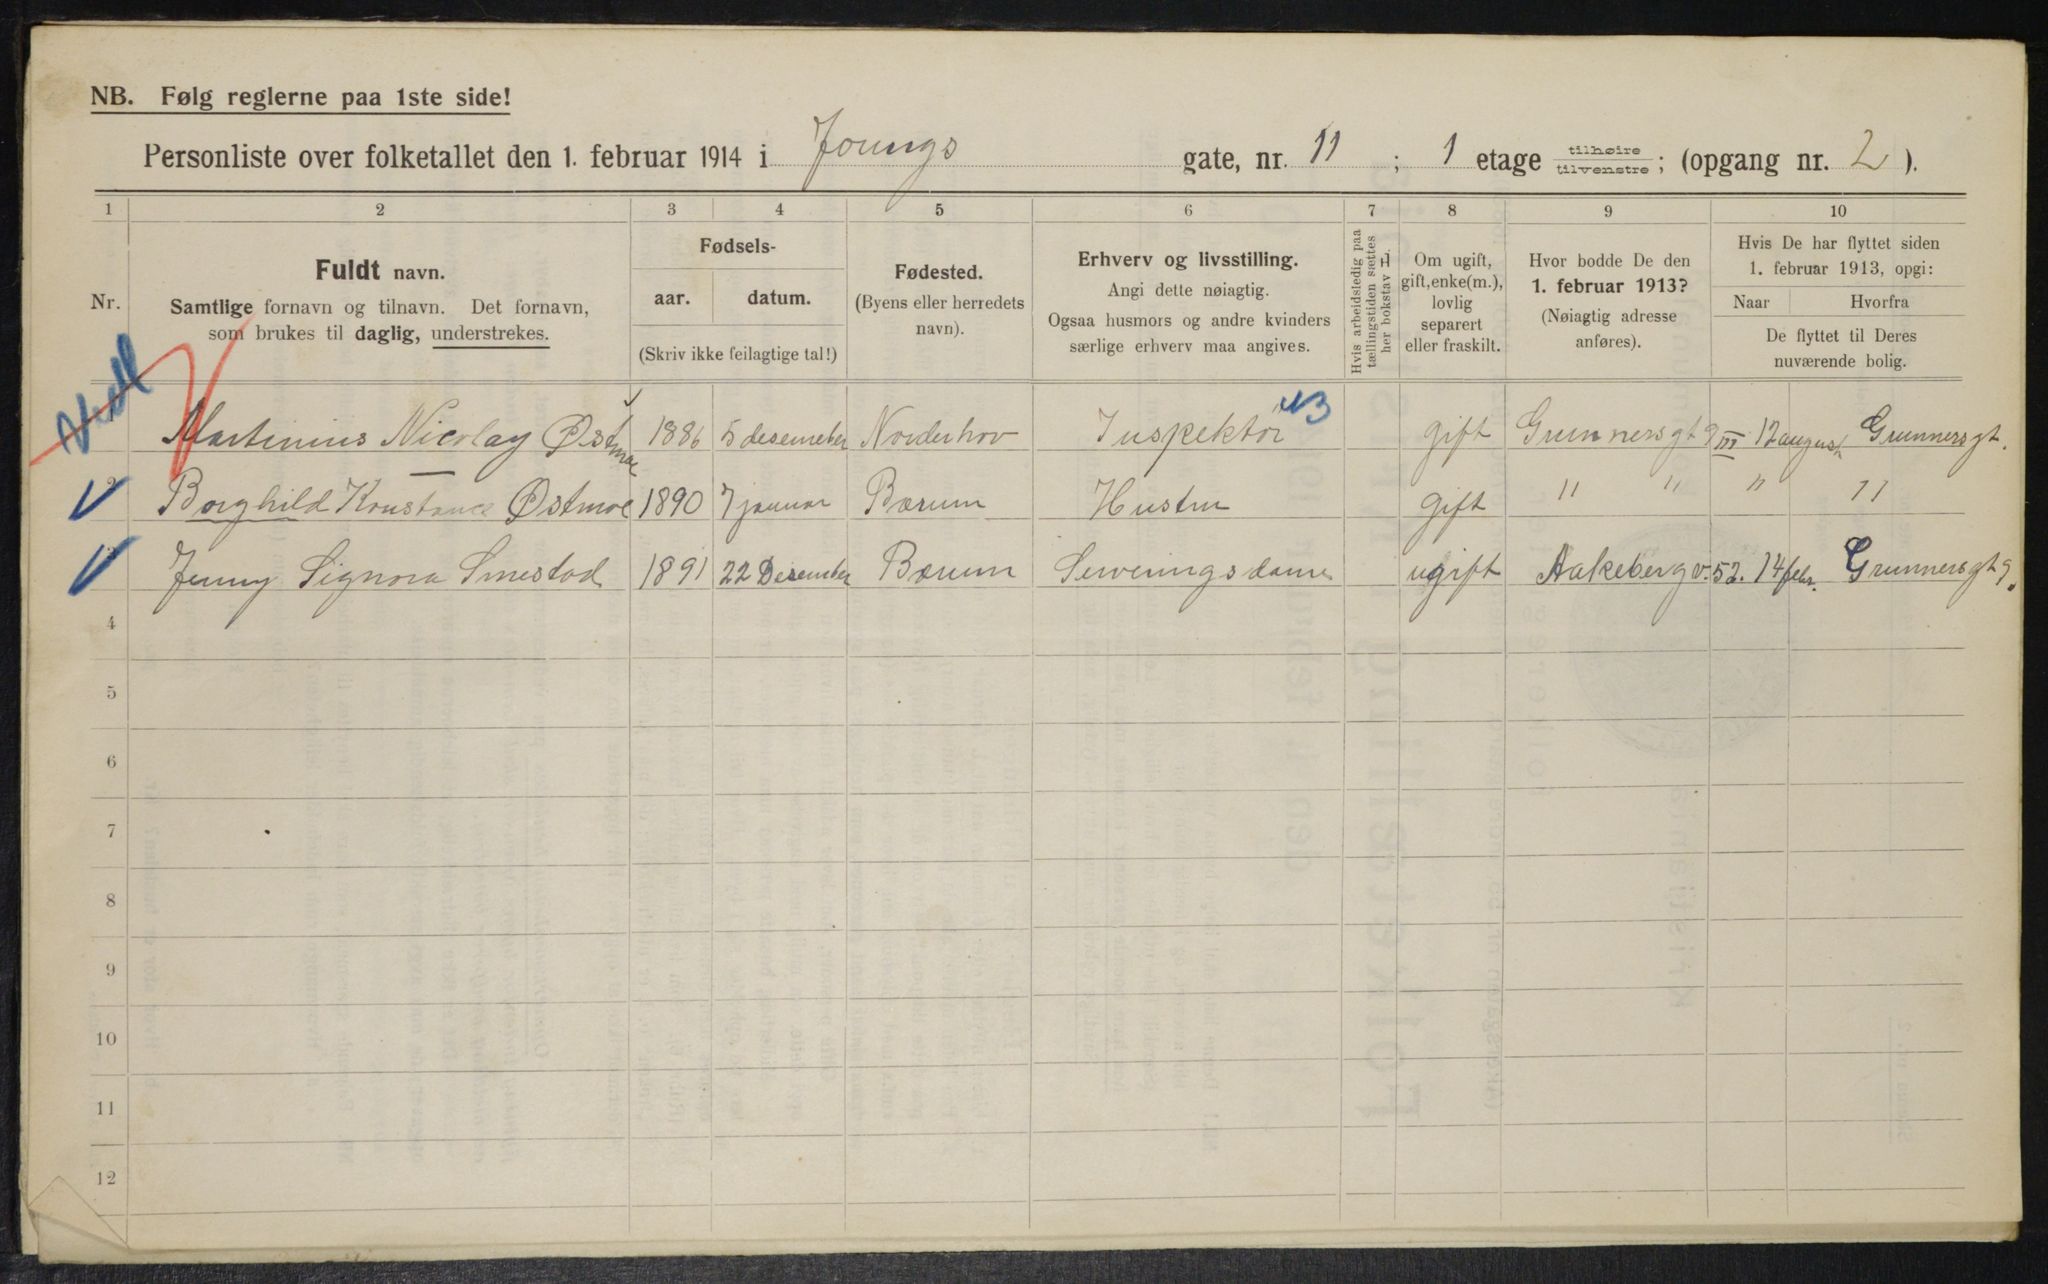 NB. Følg reglerne paa 1ste side!
Personliste over folketallet den 1. februar 1914 i Joungs gate, nr. 11 ; 1 etage tilhøire tilvenstre ; (opgang nr. 2 ).
1 2 3 4 5 6 7 8 9 10
Nr.
Fuldt navn.
Samtlige fornavn og tilnavn. Det fornavn,
som brukes til daglig, understrekes.
Fødsels-
aar. datum.
(Skriv ikke feilagtige tal!)
Fødested.
(Byens eller herredets
navn).
Erhverv og livsstilling.
Angi dette nøiagtig.
Ogsaa husmors og andre kvinders
særlige erhverv maa angives.
Hvis arbeidsledig paa
tællingstiden sættes
her bokstav L.
Om ugift,
gift, enke(m.),
lovlig
separert
eller fraskilt.
Hvor bodde De den
1. februar 1913?
(Nøiagtig adresse
anføres).
Hvis De har flyttet siden
1. februar 1913, opgi:
Naar Hvorfra
De flyttet til Deres
nuværende bolig.
1 Martinius Nicolay Østmoe 1886 5 desemeber Norderhov Inspektør gift Grunnersgt 9 III 12 august Grunnersgt.
2 Borghild Konstance Østmoe 1890 7 januar Bærum Hustru gift " " " "
3 Jenny Signora Smestad 1891 22 Desember Bærum Serveringsdame ugift Aakeberg v. 52. 14 febr. Grunnersgt 9.
4
5
6
7
8
9
10
11
12